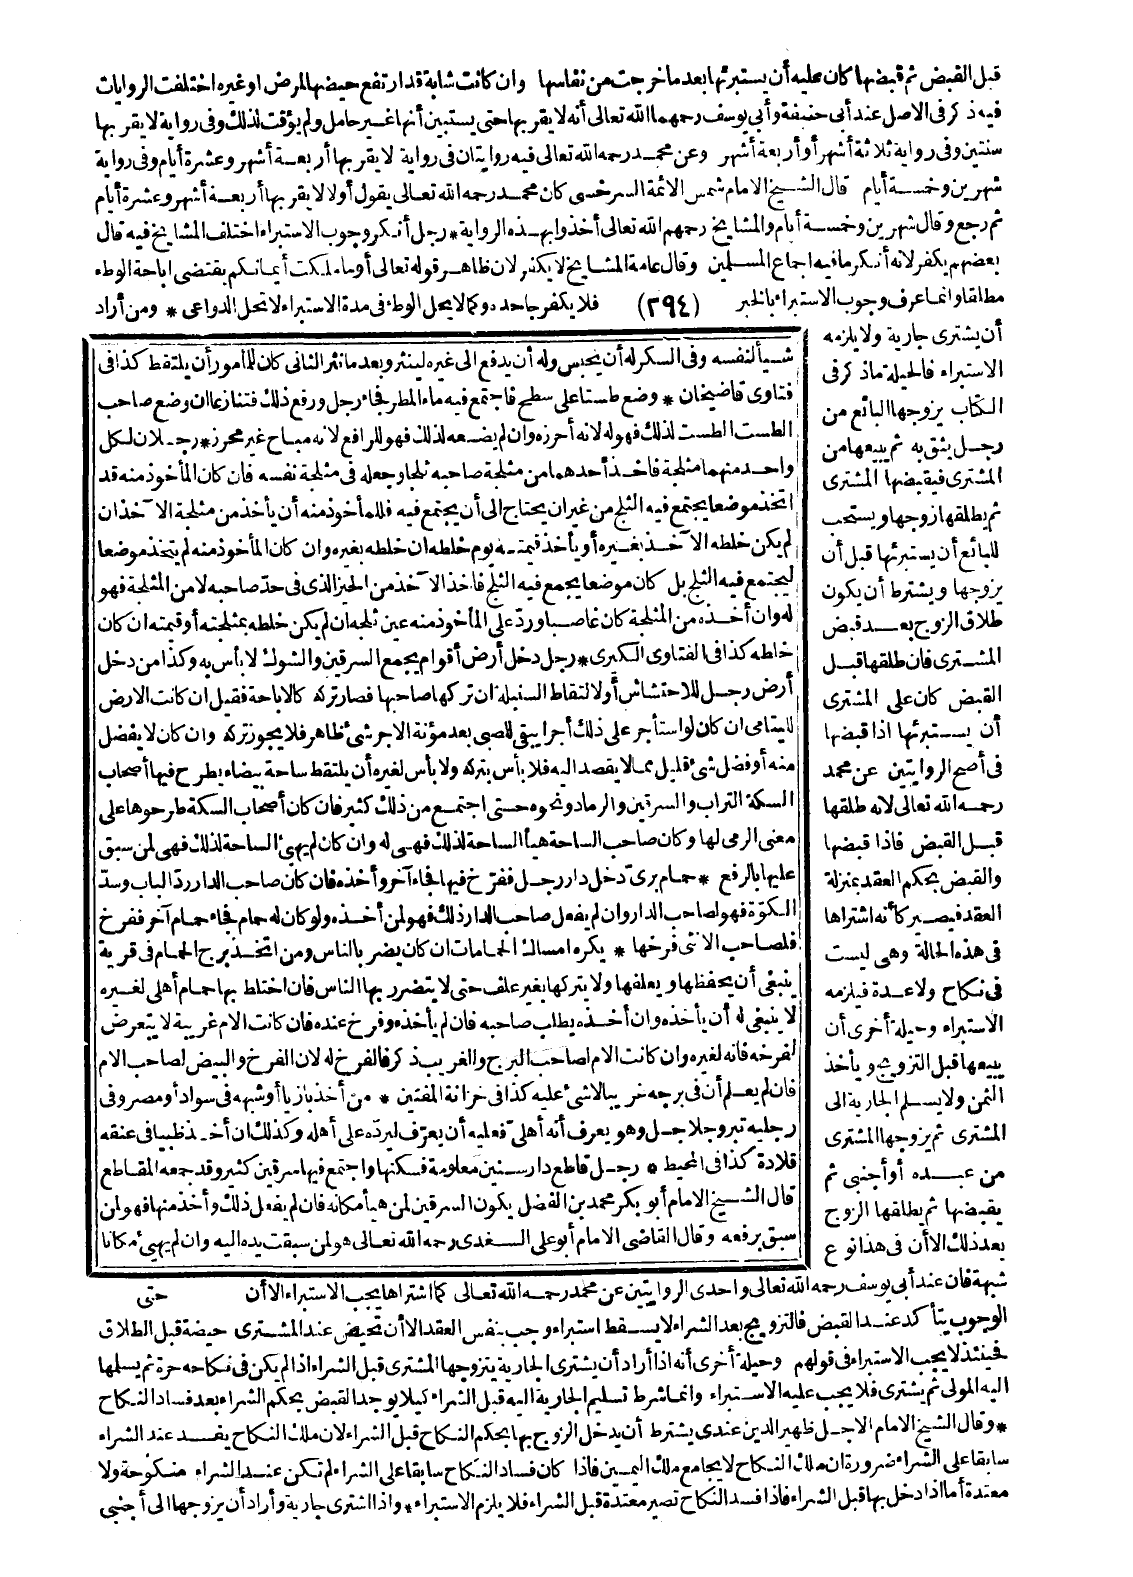 قبل القبض ثم قبضها كان عليه أن يستبرئها بعد ما خرجت من نفاسها وان كانت شابة قد ارتفع حيضها لمرض او غيره اختلفت الروايات
فيه ذكر في الاصل عند أبي حنيفة وأبي يوسف رحمهما الله تعالى أنه لا يقربها حتى يستبين أنها غير حامل ولم يؤقت لذلك وفى رواية لا يقربها
سنتين وفى رواية ثلاثة أشهر أو أربعة أشهر وعن محمد رحمه الله تعالى فيه روايتان فى رواية لا يقربها أربعة أشهر وعشرة أيام وفى رواية
شهرين وخمسة أيام قال الشيخ الامام شمس الائمة السرخسى كان محمد رحمه الله تعالى يقول أولا لا يقربها أربعة أشهر وعشرة أيام
ثم رجع وقال شهرين وخمسة أيام والمشايخ رحمهم الله تعالى أخذوا بهذه الرواية * رجل أنكر وجوب الاستبراء اختلف المشايخ فيه قال
بعضهم يكفر لانه أنكر ما فيه اجماع المسلمين وقال عامة المشايخ لا يكفر لان ظاهر قوله تعالى أو ما ملكت أيمانكم يقتضى اباحة الوطء
مطلقا وانما عرف وجوب الاستبراء بالخبر (٣٩٤) فلا يكفر جاحده وكما لا يحل الوطء فى مدة الاستبراء لا تحل الدواعى * ومن أراد
أن يشترى جارية ولا يلزمه
الاستبراء فالحيلة ماذكر فى
الكتاب يزوجها البائع من
رجل يثق به ثم يبيعها من
المشترى فيقبضها المشترى
ثم يطلقها زوجها ويستحب
للبائع أن يستبرئها قبل أن
يزوجها ويشترط أن يكون
طلاق الزوج بعد قبض
المشترى فان طلقها قبل
القبض كان على المشترى
أن يستبرئها اذا قبضها
فى أصح الروايتين عن محمد
رحمه الله تعالى لانه طلقها
قبل القبض فاذا قبضها
والقبض بحكم العقد بمنزلة
العقد فيصير كأنه اشتراها
فى هذه الحالة وهى ليست
فى نكاح ولا عدة فيلزمه
الاستبراء وحيلة أخرى أن
يبيعها قبل التزويج ويأخذ
الثمن ولا يسلم الجارية الى
المشترى ثم يزوجها المشترى
من عبده أو أجنبى ثم
يقبضها ثم يطلقها الزوج
بعد ذلك الا أن فى هذا نوع
شبهة فان عند أبي يوسف رحمه الله تعالى واحدى الروايتين عن محمد رحمه الله تعالى كما اشتراها يجب الاستبراء الا أن
الوجوب يتأكد عند القبض فالتزويج بعد الشراء لا يسقط استبراء وجب بنفس العقد الا أن تحيض عند المشترى حيضة قبل الطلاق
فحينئذ لا يجب الاستبراء فى قولهم وحيلة أخرى أنه اذا أراد أن يشترى الجارية يتزوجها المشترى قبل الشراء اذا لم يكن فى نكاحه حرة ثم يسلمها
اليه المولى ثم يشترى فلا يجب عليه الاستبراء وانما شرط تسليم الجارية اليه قبل الشراء كيلا يوجد القبض بحكم الشراء بعد فساد النكاح
* وقال الشيخ الامام الاجل ظهير الدين عندى يشترط أن يدخل الزوج بها بحكم النكاح قبل الشراء لان ملك النكاح يفسد عند الشراء
سابقا على الشراء ضرورة ان ملك النكاح لا يجامع ملك اليمين فاذا كان فساد النكاح سابقا على الشراء لم تكن عند الشراء منكوحة ولا
معتدة أما اذا دخل بها قبل الشراء فاذا فسد النكاح تصير معتدة قبل الشراء فلا يلزم الاستبراء * واذا اشترى جارية وأراد أن يزوجها الى أجنبى
شيأ لنفسه وفى السكر له أن يحبس وله أن يدفع الى غيره لينثر وبعد ما نثر الثانى كان للمأمور أن يلتقط كذا فى
فتاوى قاضيخان * وضع طستا على سطح فاجتمع فيه ماء المطر فجاء رجل ورفع ذلك فتنازعا ان وضع صاحب
الطست الطست لذلك فهو له لانه أحرزه وان لم يضعه لذلك فهو للرافع لانه مباح غير محرز * رجلان لكل
واحد منهما مثلجة فاخذ أحدهما من مثلجة صاحبه ثلجا وجعله فى مثلجة نفسه فان كان المأخوذ منه قد
اتخذ موضعا يجتمع فيه الثلج من غير ان يحتاج الى أن يجتمع فيه فللمأخوذ منه أن يأخذ من مثلجة الآخذ ان
لم يكن خلطه الآخذ بغيره أو يأخذ قيمته يوم خلطه ان خلطه بغيره وان كان المأخوذ منه لم يتخذ موضعا
ليجتمع فيه الثلج بل كان موضعا يجمع فيه الثلج فاخذ الآخذ من الحيز الذى فى حد صاحبه لا من المثلجة فهو
له وان أخذه من المثلجة كان غاصبا ورد على المأخوذ منه عين ثلجه ان لم يكن خلطه بمثلجته أو قيمته ان كان
خلطه كذا فى الفتاوى الكبرى * رجل دخل أرض أقوام يجمع السرقين والشوك لا بأس به وكذا من دخل
أرض رجل للاحتشاش أو لالتقاط السنبلة ان تركها صاحبها فصار تركه كالاباحة فقيل ان كانت الارض
لليتامى ان كان لو استأجر على ذلك أجرا يبقى للصبى بعد مؤنة الاجر شئ ظاهر فلا يجوز تركه وان كان لا يفضل
منه أو فضل شئ قليل مما لا يقصد اليه فلا بأس بتركه ولا بأس لغيره أن يلتقط ساحة بيضاء يطرح فيها أصحاب
السكة التراب والسرقين والرماد ونحوه حتى اجتمع من ذلك كثير فان كان أصحاب السكة طرحوها على
معنى الرمى لها وكان صاحب الساحة هيأ الساحة لذلك فهى له وان كان لم يهئ الساحة لذلك فهى لمن سبق
عليها بالرفع * حمام برى دخل دار رجل ففرخ فيها فجاء آخر وأخذه فان كان صاحب الدار رد الباب وسد
الكوة فهو لصاحب الدار وان لم يفعل صاحب الدار ذلك فهو لمن أخذه ولو كان له حمام فجاء حمام آخر ففرخ
فلصاحب الانثى فرخها * يكره امساك الحمامات ان كان يضر بالناس ومن اتخذ برج الحمام فى قرية
ينبغى أن يحفظها ويعلفها ولا يتركها بغير علف حتى لا يتضرر بها الناس فان اختلط بها حمام أهلى لغيره
لا ينبغى له أن يأخذه وان أخذه يطلب صاحبه فان لم يأخذه وفرخ عنده فان كانت الام غريبة لا يتعرض
لفرخه فانه لغيره وان كانت الام لصاحب البرج والغريب ذكر فالفرخ له لان الفرخ والبيض لصاحب الام
فان لم يعلم أن فى برجه غريبا لا شئ عليه كذا فى خزانة المفتين * من أخذ بازيا أو شبهه فى سواد أو مصر وفى
رجليه تبر وجلاجل وهو يعرف أنه أهلى فعليه أن يعرف ليرده على أهله وكذلك ان أخذ ظبيا فى عنقه
قلادة كذا فى المحيط * رجل قاطع دار سنين معلومة فسكنها واجتمع فيها سرقين كثير وقد جمعه المقاطع
قال الشيخ الامام أبو بكر محمد بن الفضل يكون السرقين لمن هيأ مكانه فان لم يفعل ذلك وأخذ منها فهو لمن
سبق برفعه وقال القاضى الامام أبو على السغدى رحمه الله تعالى هو لمن سبقت يده اليه وان لم يهئ مكانا
حتى